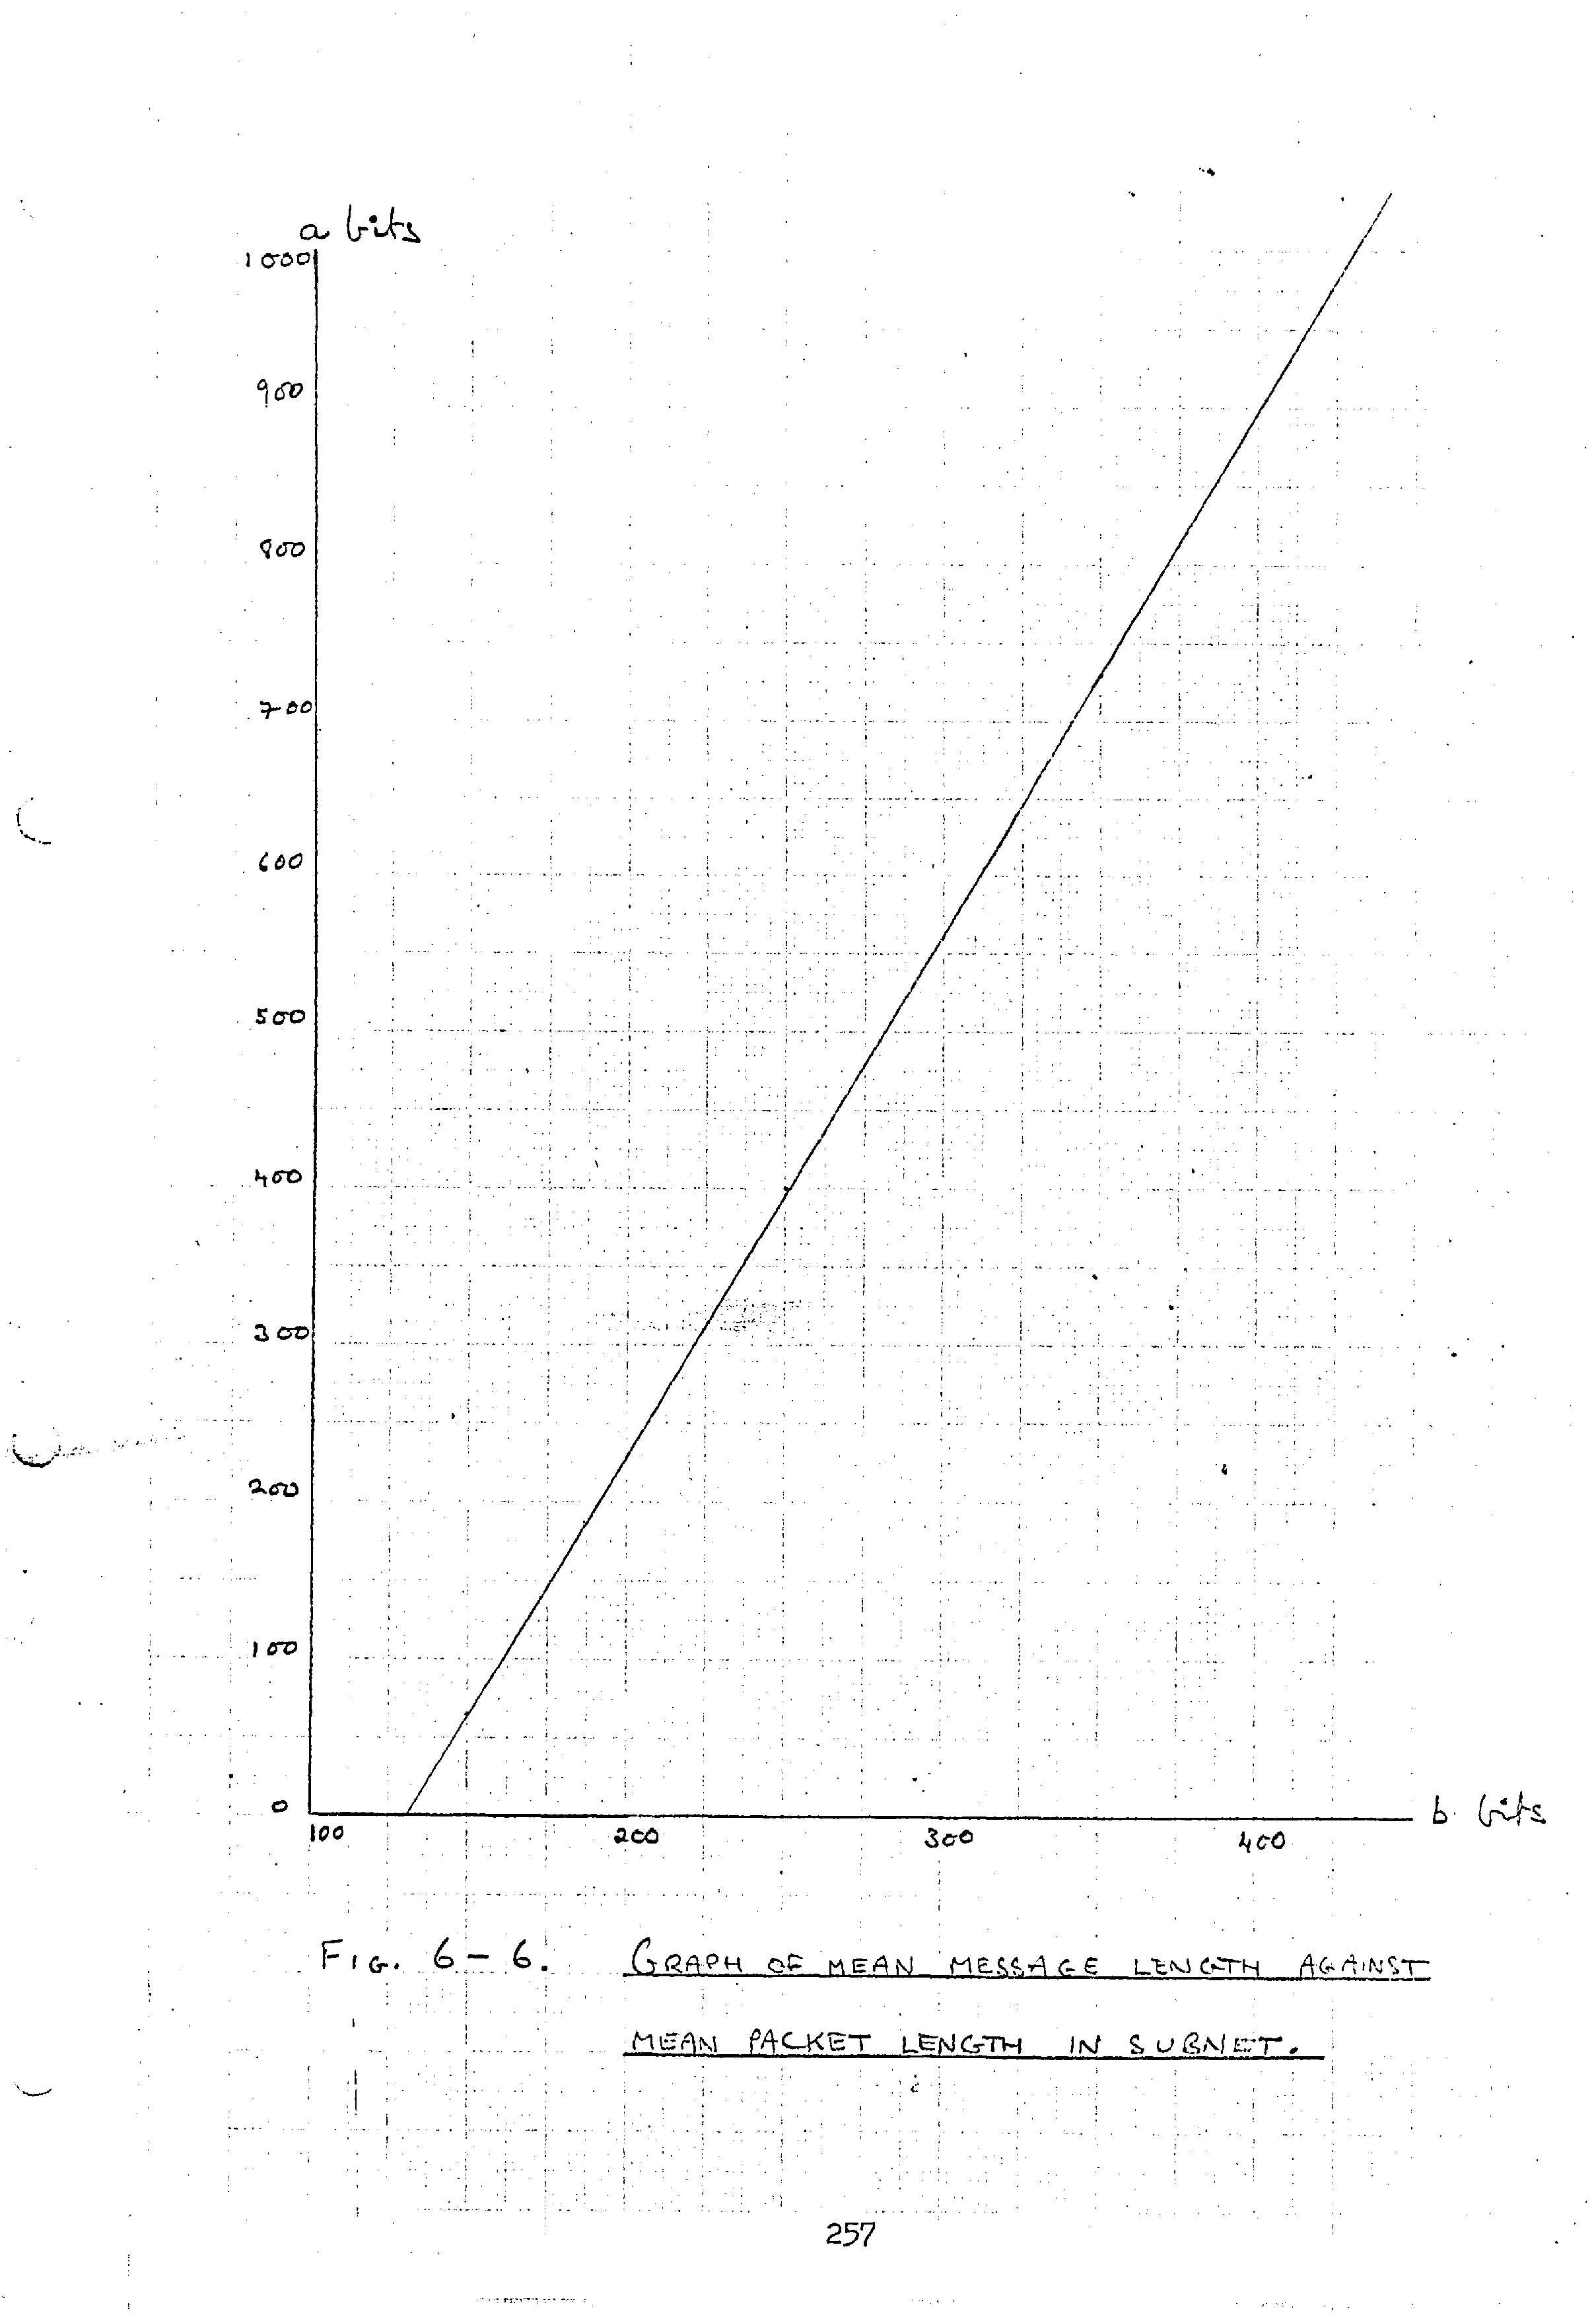 a bits
1000
900
800
700
600
500
400
300
200
100
0
100 200 300 400
b bits
FIG. 6-6. GRAPH OF MEAN MESSAGE LENGTH AGAINST
MEAN PACKET LENGTH IN SUBNET.
257